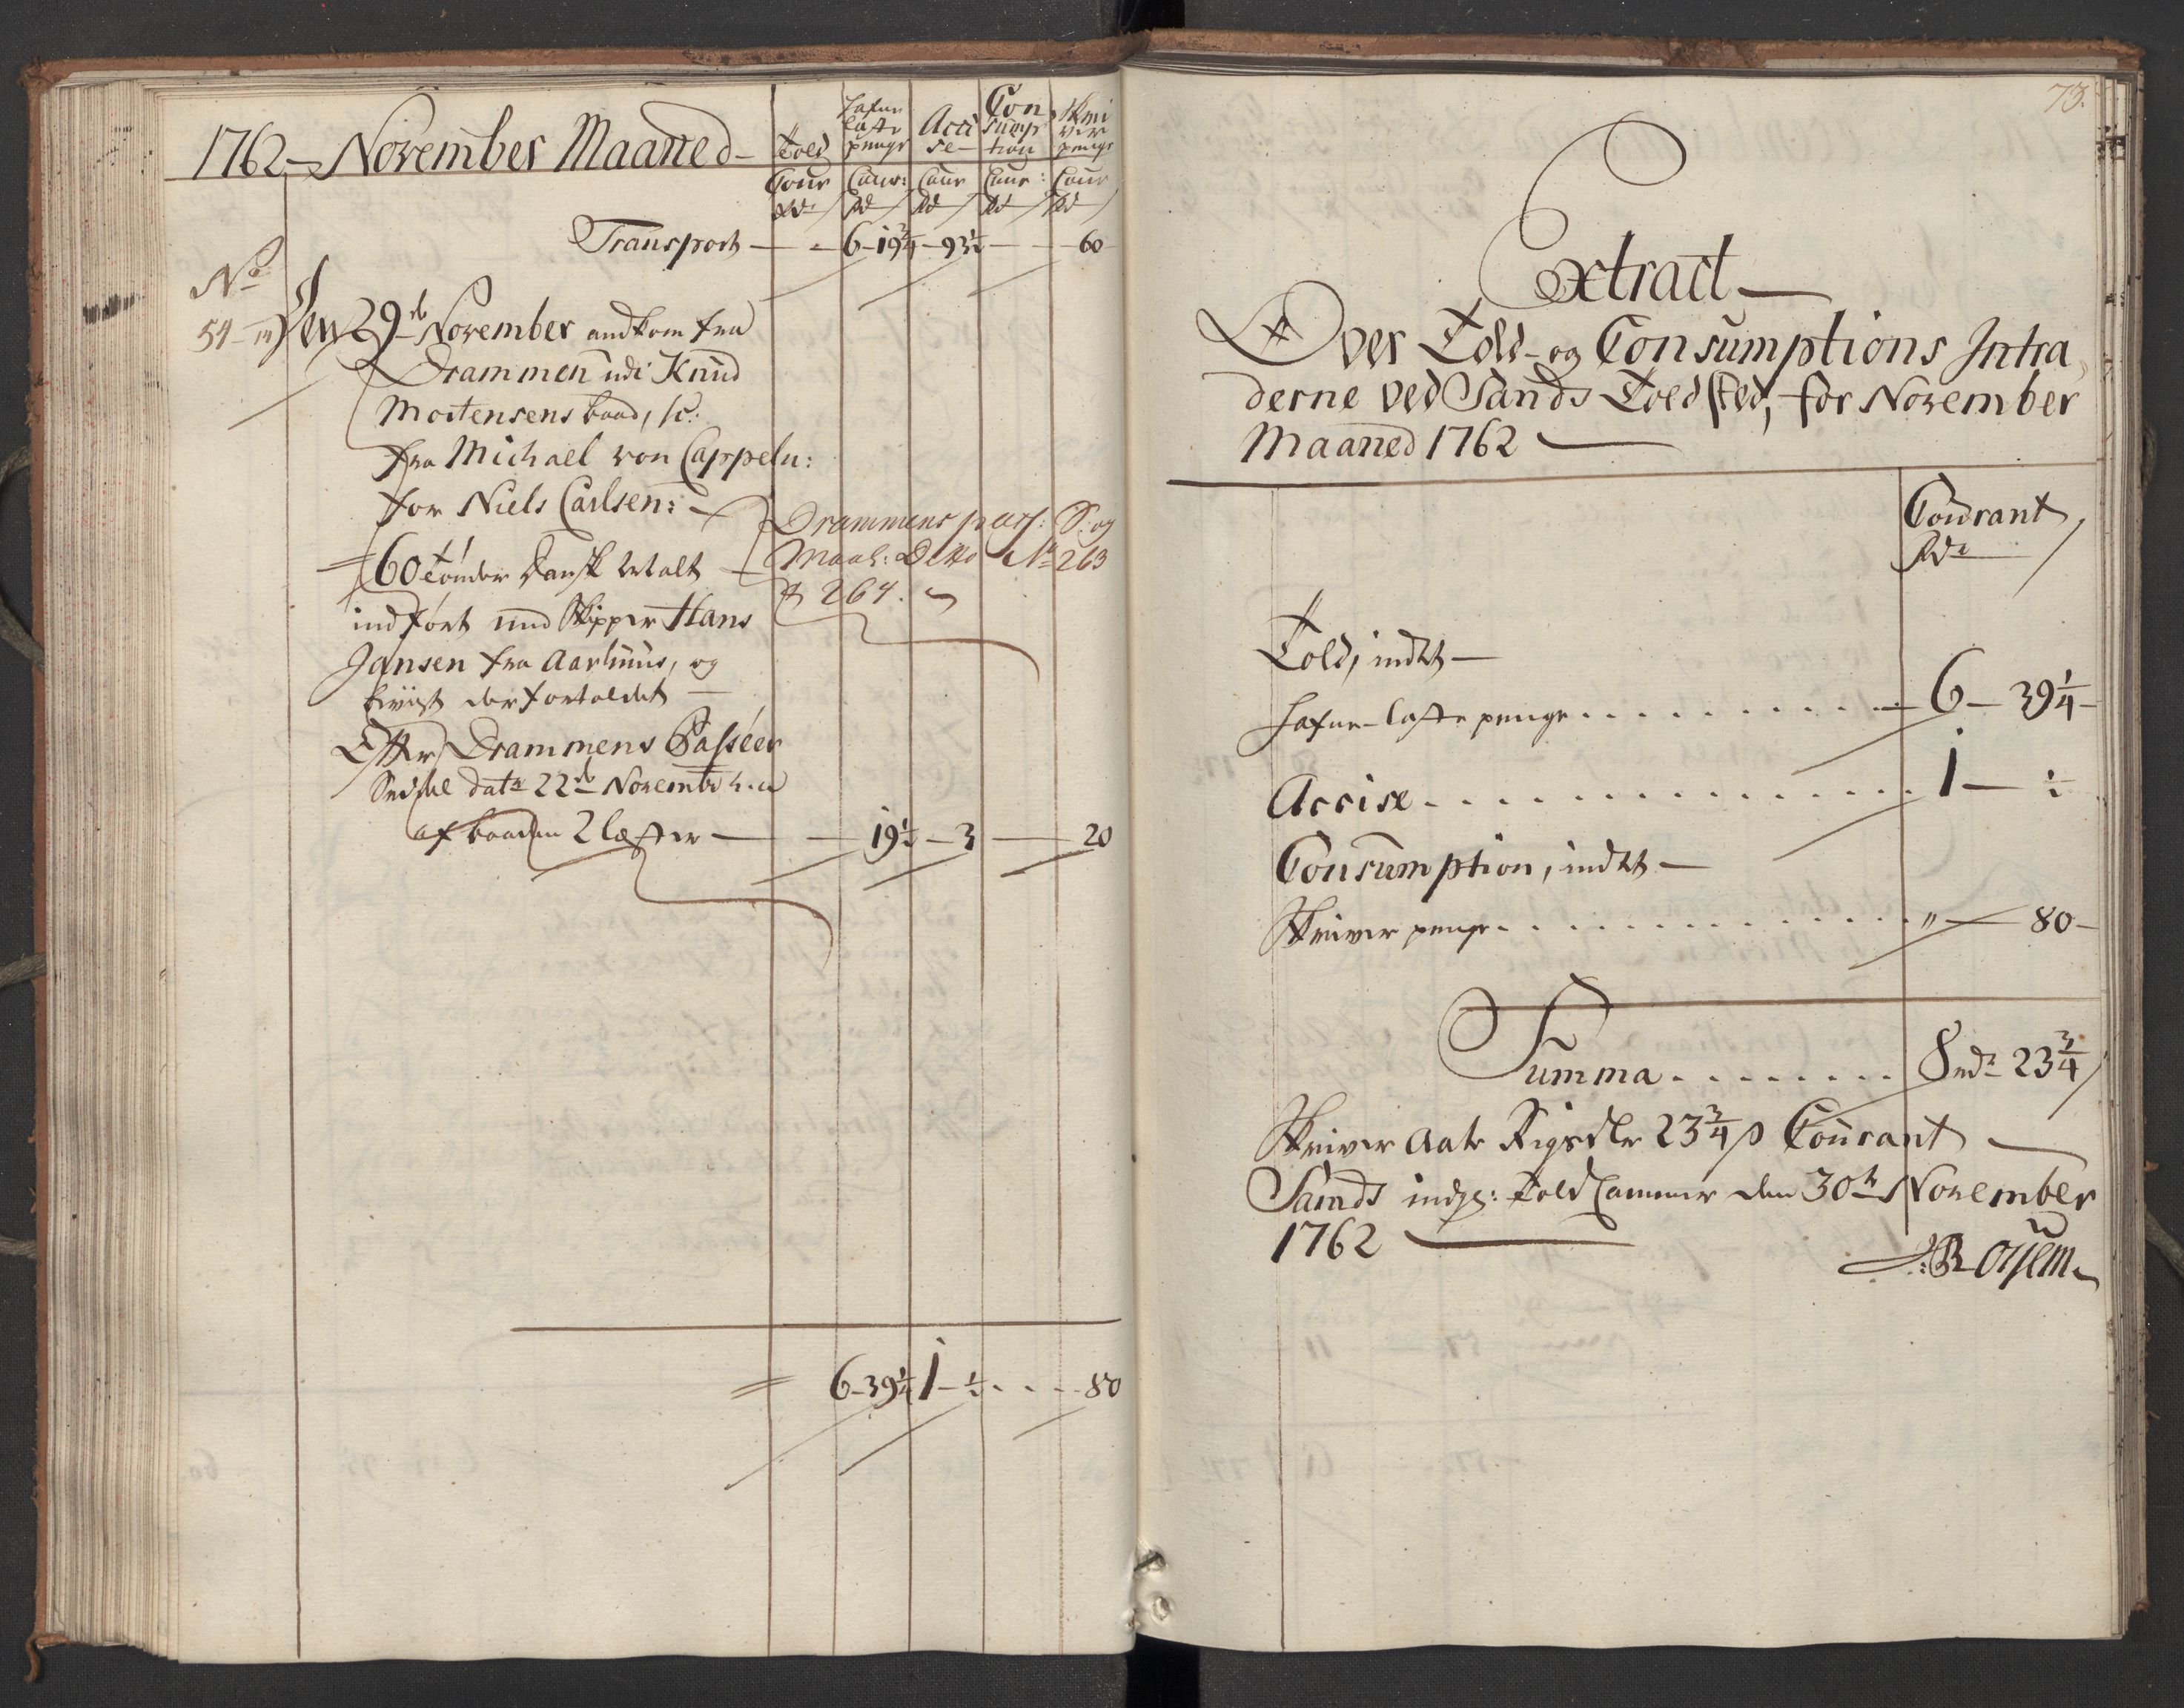 1762 – November Maaned –
Told
Hafne
laste
penge
Acci
se –
Con
sump
tion
Skri
ver
penge
Cour
Cour:
Cour
Cour:
Cour
Rd
Rd
Rd
Rd
Rd
Transport — – 6 – 19¾ – 93½ — 60
No
54
Den 29de November andkom fra
Drammen udi Knud
Mortensens baad, sc:
fra Michael von Cappeln:
for Niels Carlsen: –
60 tønder Dansk Malt
Drammens pass: S: og
Maal: Ditto No 263
& 264.
indført med Skipper Hans
Jansen fra Aarhuus, og
beviist der fortoldet –
Efter Drammens Passeer
Seddel dat 22de Novembr h.a
af baaden 2 læster — 19½ – 3 — 20
6 – 39¼ 1 – ½ . . . 80
73.
Extract –
Over Told- og Consumptions Intra
derne ved Sands Toldsted, for November
Maaned 1762
Courant
Rdr
Told, indtet –
Hafne-laste penge . . . . . . . . . . 6 – 39¼ –
Accise . . . . . . . . . . . . . . . 1 — ½
Consumption, indtet –
Skriver penge . . . . . . . . . . . . " — 80 –
Summa . . . . . . . . 8 rdr 23¾
Skriver Aate Rigsdlr 23¾ s Courant
Sands Told Cammer den 30te November
1762